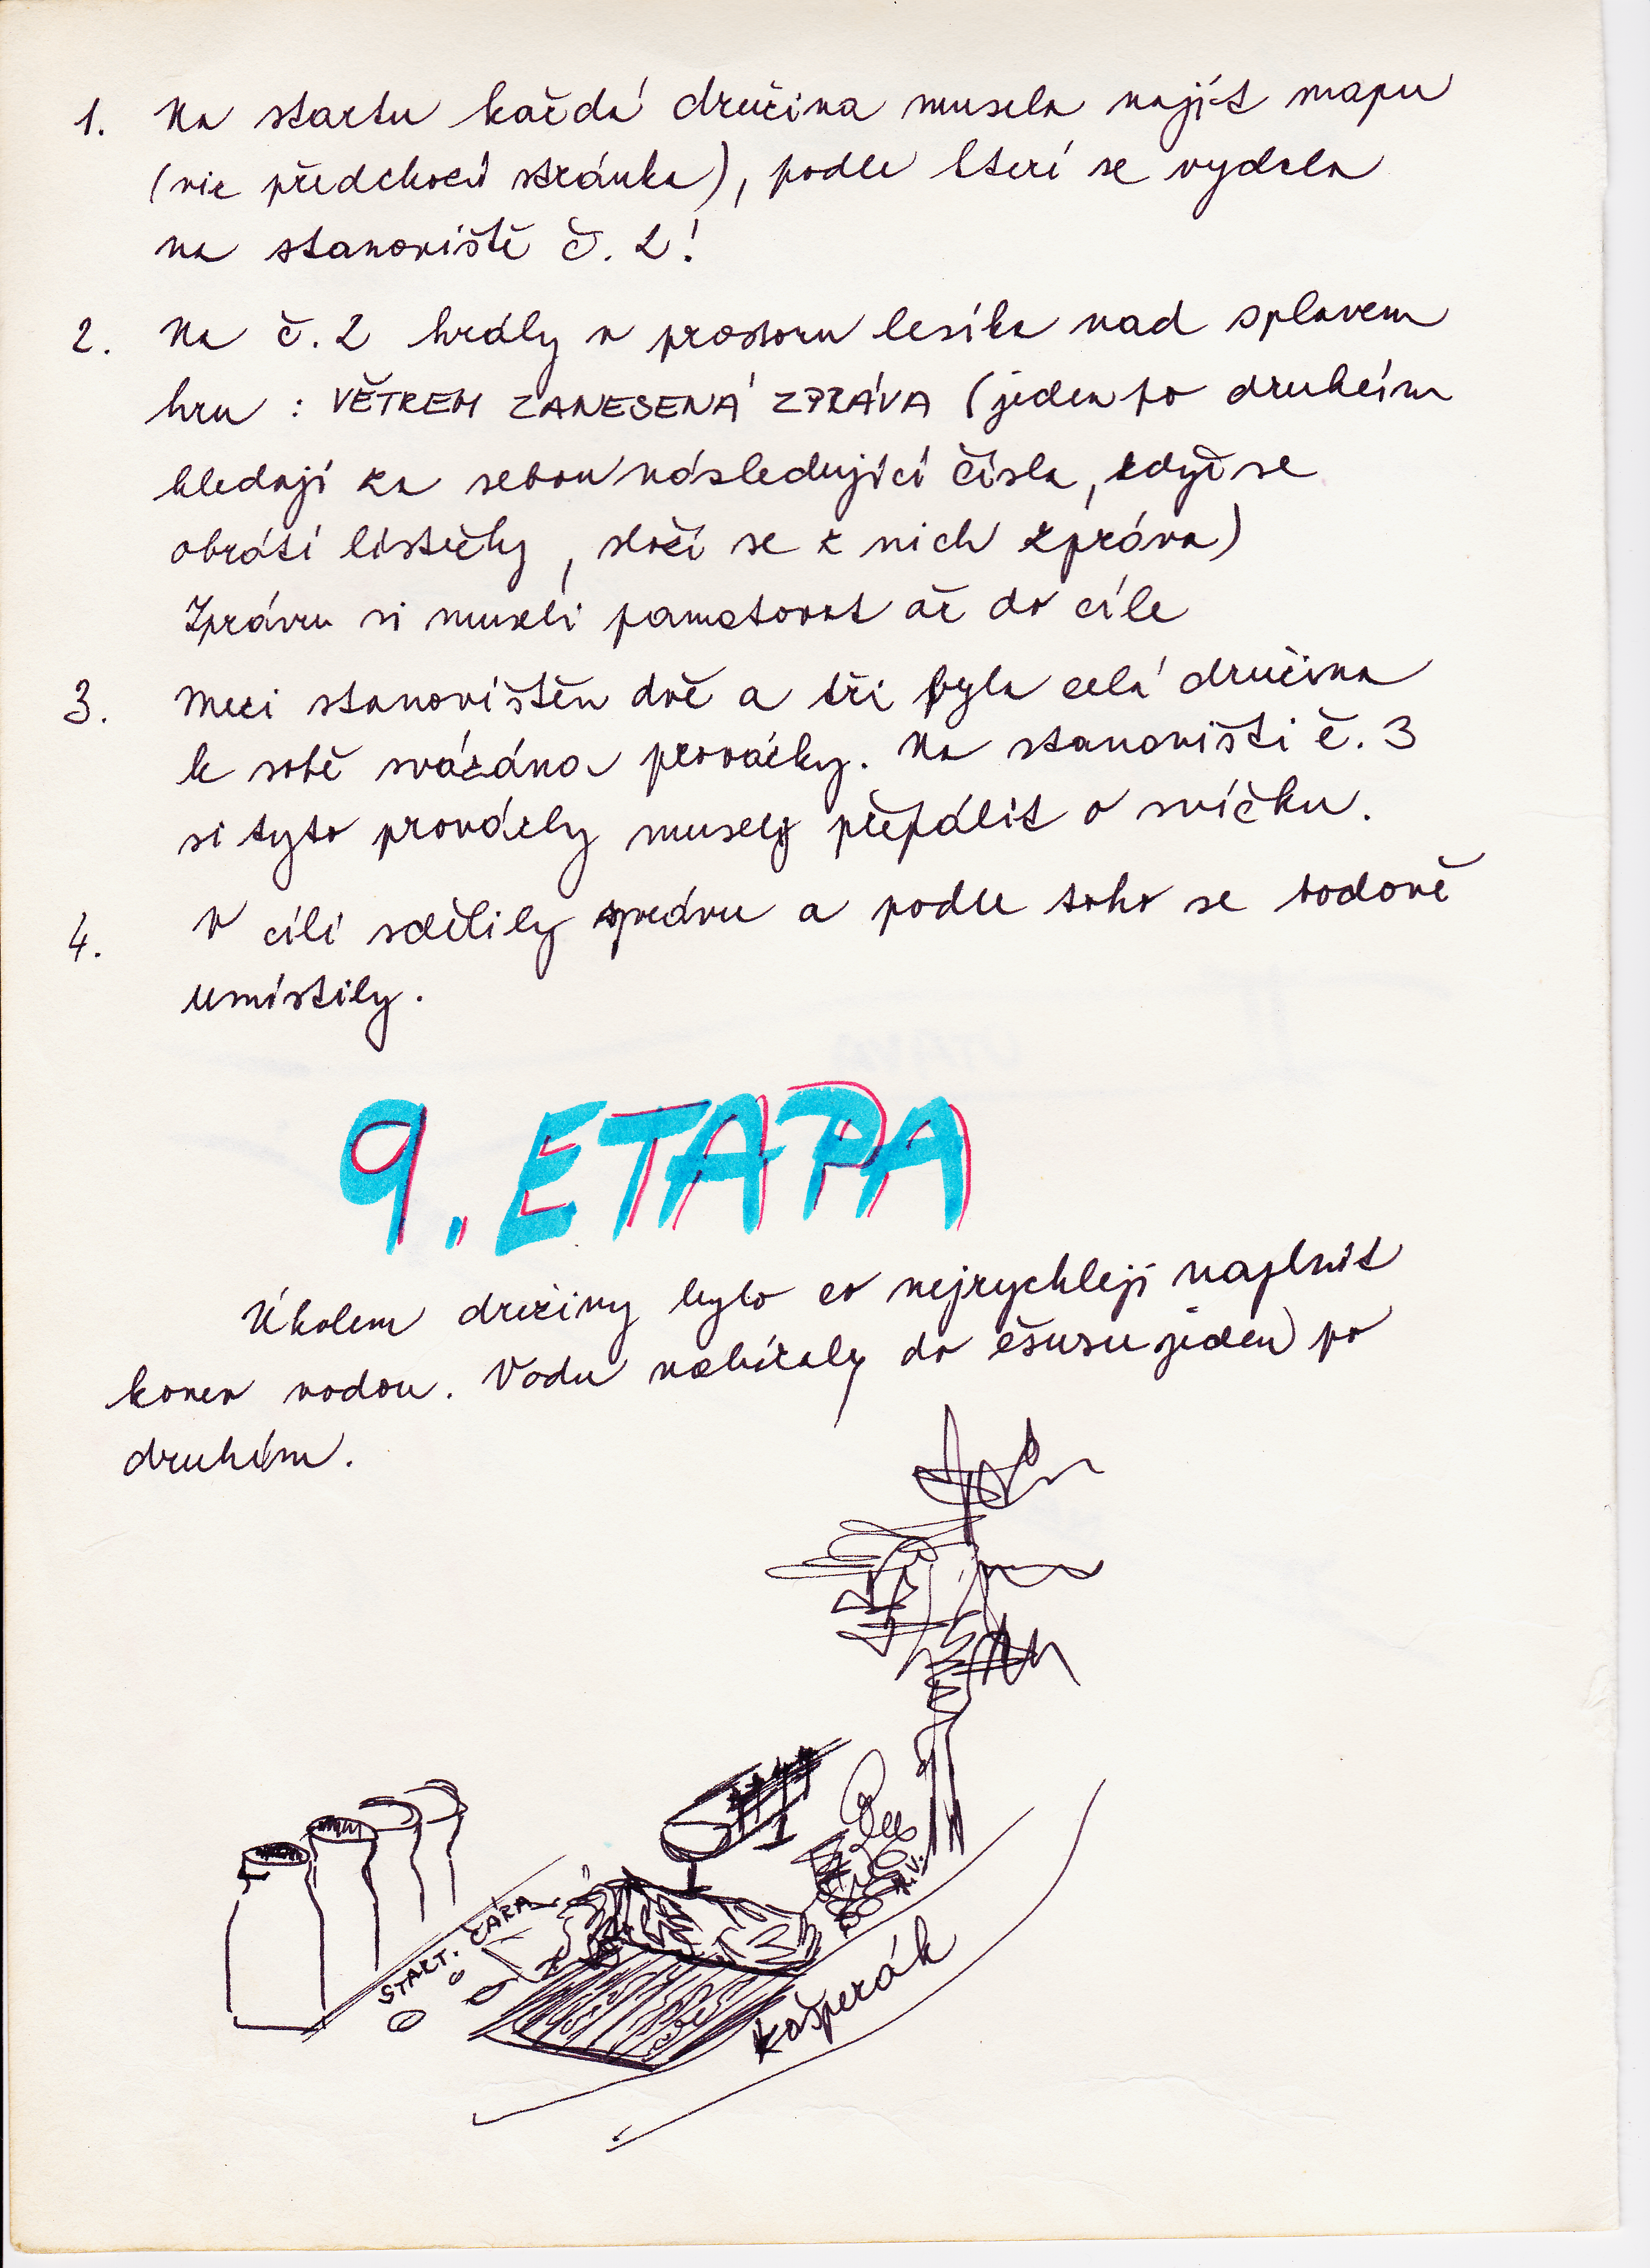 1. Na startu každá družina musela najít mapu
(viz předchozí stránka), podle které se vydala
na stanoviště č. 2!
2. Na č. 2 hrály v prostoru lesíka nad splavem
hru : VĚTREM ZANESENÁ ZPRÁVA (jeden po druhém
hledají za sebou následující čísla, když se
obrátí lístečky, složí se z nich zpráva)
Zprávu si museli pamatovat až do cíle
3. Mezi stanovištěm dvě a tři byla celá družina
k sobě svázána provázky. Na stanovišti č. 3
si tyto provázky musely přepálit o svíčku.
4. V cíli sdělily zprávu a podle toho se bodově
umístily.
9. ETAPA
Úkolem družiny bylo co nejrychleji naplnit
konev vodou. Vodu nabíraly do ešusu jeden po
druhém.
START. ČÁRA
Kašperák